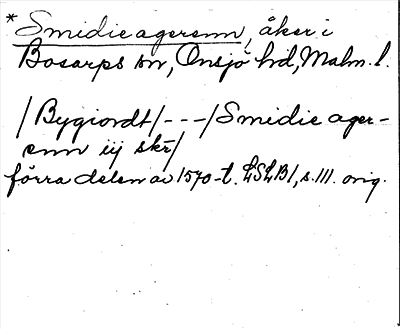 * Smidie agerenn, åker i
Bosarps sn, Onsjö hd, Malm. l.
/Bygiordt/---/Smidie ager-
enn iij skr/
förra delen av 1570-t. LSLB1, s.111. orig.